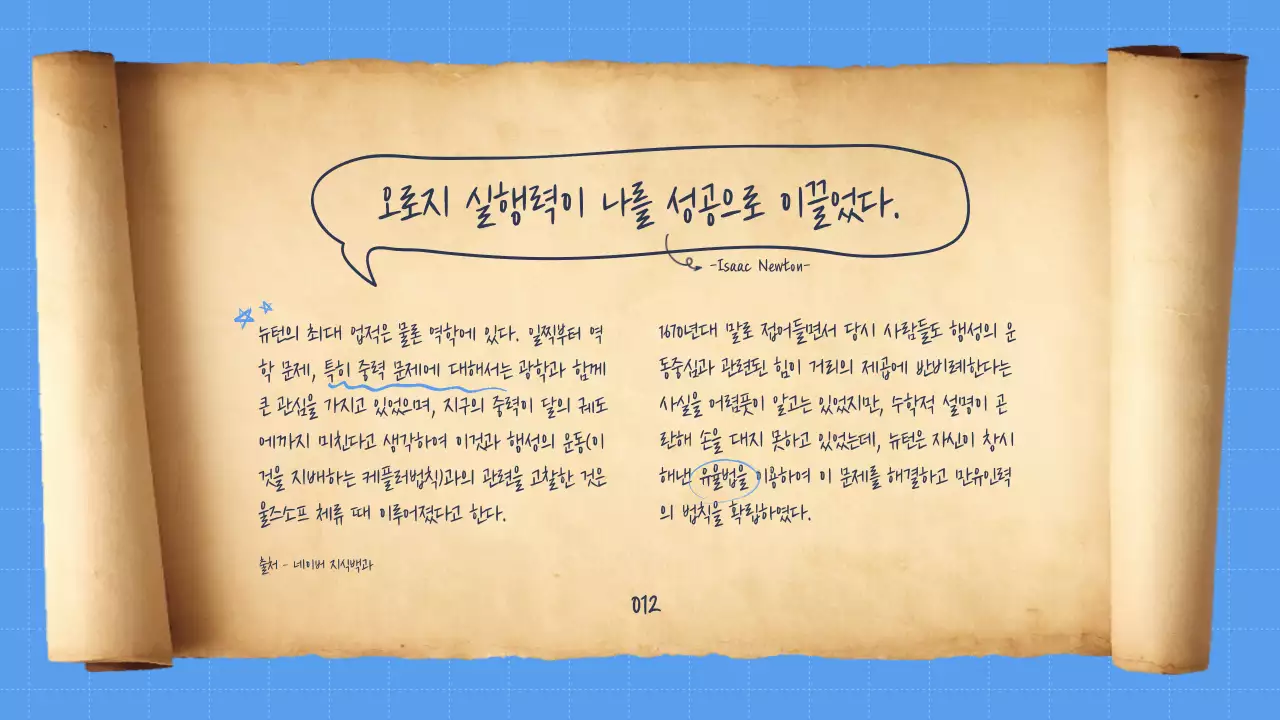 오로지 실행력이 나를 성공으로 이끌었다.
-Isaac Newton-
뉴턴의 최대 업적은 물론 역학에 있다. 일찍부터 역
학 문제, 특히 중력 문제에 대해서는 광학과 함께
큰 관심을 가지고 있었으며, 지구의 중력이 달의 궤도
에까지 미친다고 생각하여 이것과 행성의 운동(이
것을 지배하는 케플러법칙)과의 관련을 고찰한 것은
울즈소프 체류 때 이루어졌다고 한다.
출처 - 네이버 지식백과
1670년대 말로 접어들면서 당시 사람들도 행성의 운
동중심과 관련된 힘이 거리의 제곱에 반비례한다는
사실을 어렴풋이 알고는 있었지만, 수학적 설명이 곤
란해 손을 대지 못하고 있었는데, 뉴턴은 자신이 창시
해낸 유율법을 이용하여 이 문제를 해결하고 만유인력
의 법칙을 확립하였다.
012